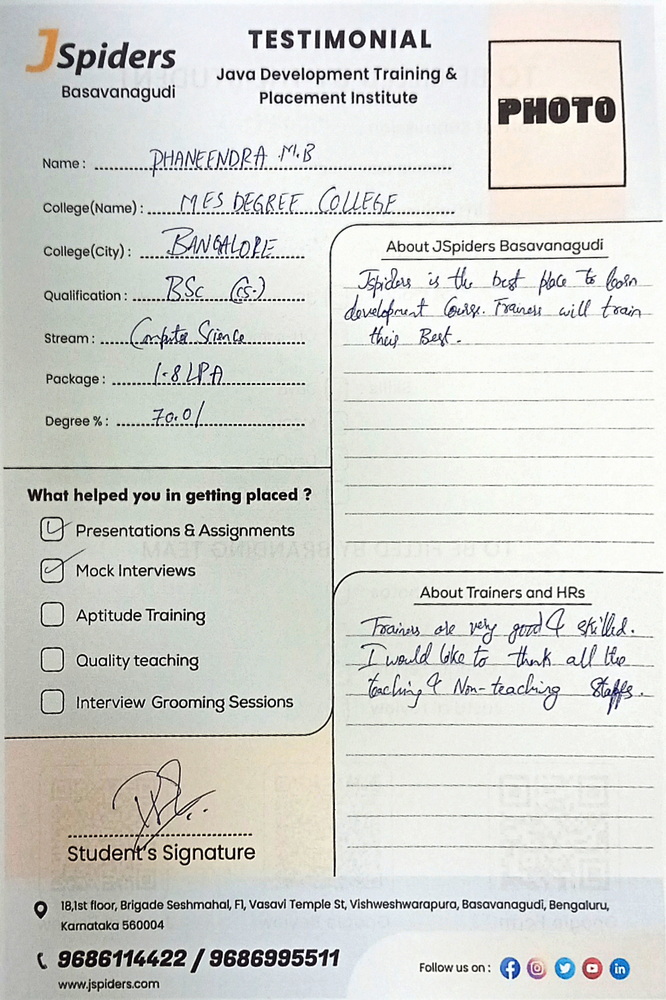 JSpiders
Basavanagudi
TESTIMONIAL
Java Development Training &
Placement Institute
PHOTO
Name : PHANEENDRA M.B
College(Name) : MES DEGREE COLLEGE
College(City) : BANGALORE
Qualification : BSc (CS)
Stream : Computer Science
Package : 1.8 LPA
Degree % : 70.0/
What helped you in getting placed ?
Presentations & Assignments
Mock Interviews
Aptitude Training
Quality teaching
Interview Grooming Sessions
Student's Signature
About JSpiders Basavanagudi
Jspiders is the best place to learn
development Course. Trainers will train
their Best.
About Trainers and HRs
Trainers are very good & skilled.
I would like to thank all the
teaching & Non-teaching Staffs.
18,1st floor, Brigade Seshmahal, F1, Vasavi Temple St, Vishweshwarapura, Basavanagudi, Bengaluru,
Karnataka 560004
9686114422 / 9686995511
www.jspiders.com
Follow us on :